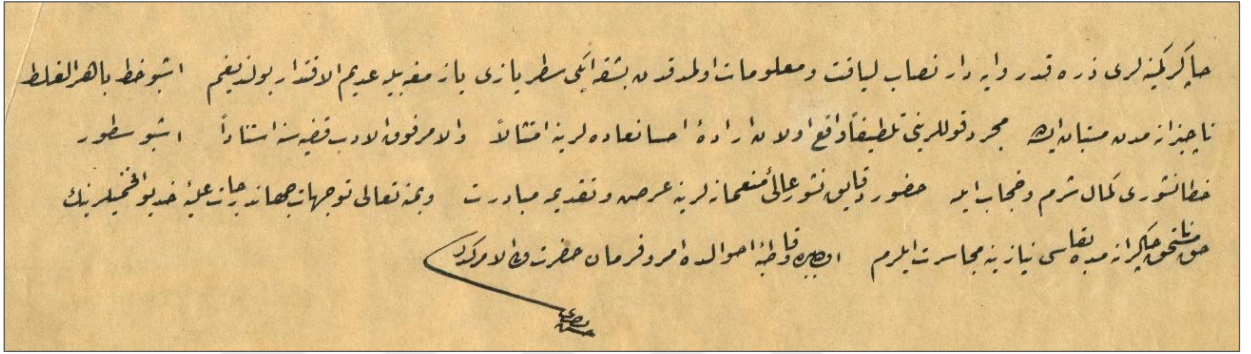 چاكر كمینه لری ذره قدر وایه دار نصاب لیاقت و معلومات اولمدقدن بشقه ایكی سطر یازی یازمغه بیله عدیم الاقتدار بولندیغم اشبو خط باهر الغلط
ناچیزانه مدن مستبان ایسه مجرد قوللرینی تلطیفاً واقع اولان ارادهٔ احسانعاده لرینه امتثالاً والامر فوق الادب قضیه سنه استناداً اشبو سطور
خطا نشوری كمال شرم و حجاب ایله حضور دقایق نشور عالئ منعمانه لرینه عرض و تقدیمه مبادرت وبمنه تعالی توجهات جهاندرجات علیهٔ خدیو افخمیلرینك
حق چاكرانه مده بقاسی نیازینه مجاسرت ایلرم اولبابده و قاطبهٔ احوالده امر و فرمان حضرت من له الامركدر